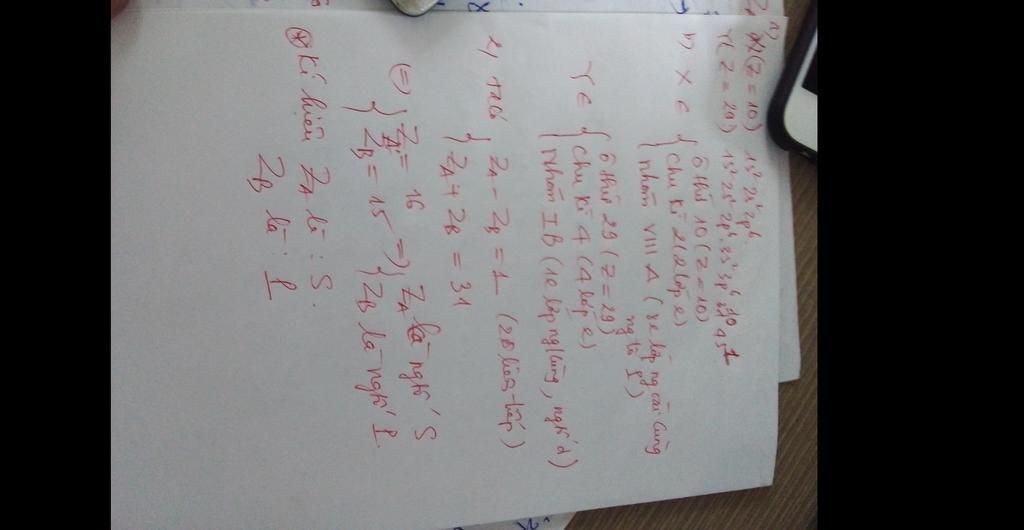 a) X (Z = 10) 1s² 2s² 2p⁶
Y (Z = 29) 1s² 2s² 2p⁶ 3s² 3p⁶ 3d¹⁰ 4s¹
b) X ∈ { ô thứ 10 (Z = 10)
chu kì 2 (2 lớp e)
nhóm VIII A (8e lớp ngoài cùng
ng tố p)
Y ∈ { ô thứ 29 (Z = 29)
chu kì 4 (4 lớp e)
nhóm I B (1e lớp ng/cùng, ngtố d)
2, Z_A - Z_B = 1
Z_A + Z_B = 31
(=) { Z_A = 16
Z_B = 15 =) { Z_A là ngtố S
Z_B là ngtố P
* Kí hiệu Z_A là : S.
Z_B là : P